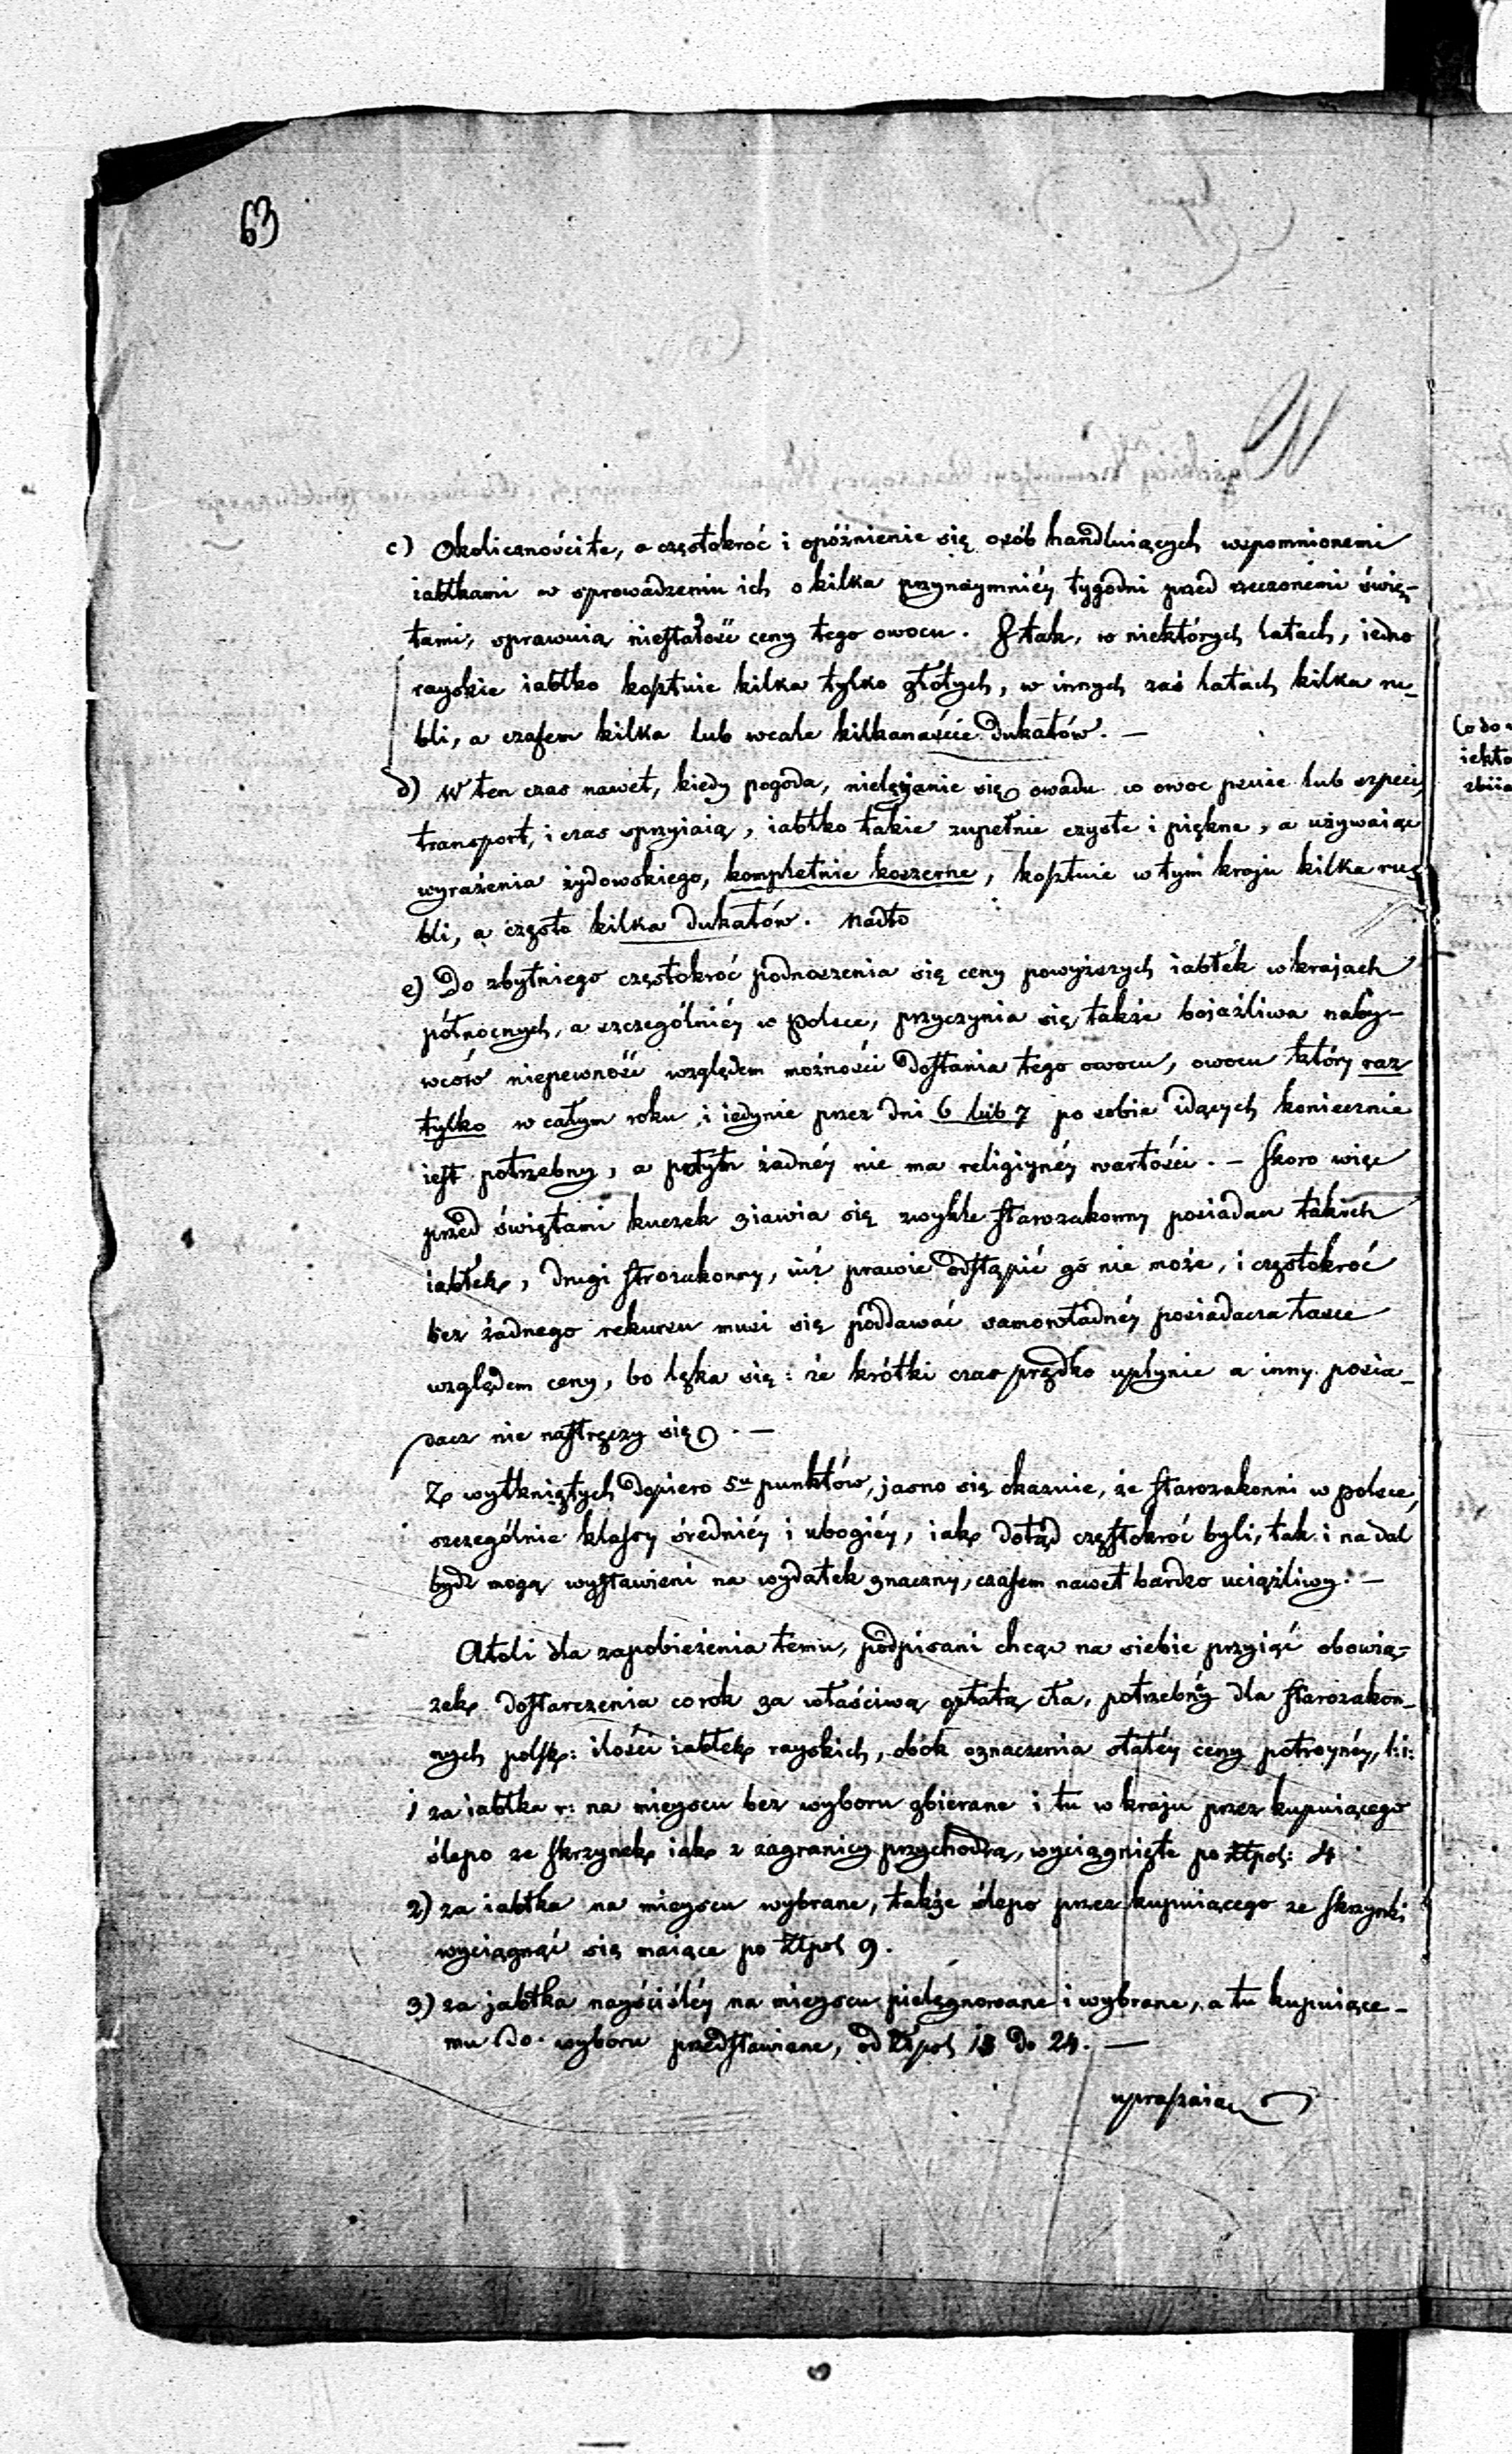 63
c) Okolicznościte, a częstokroć i opóźnienie się osób handluiących wspomnionemi
iabłkami w sprowadzeniu ich o kilka przynaymniéy tygodni przed rzeczonemi świę-
tami, sprawuią niestałość ceny tego owocu. I tak, w niektórych latach, iedno
rayskie iabłko kosztuie kilka tylko złotych, w innych zaś latach kilka ru-
bli, a czasem kilka lub wcale kilkanaście dukatów. —
d) W ten czas nawet, kiedy pogoda, nielężenie się owadu co owoc psuie lub szpeci,
transport, i czas sprzyiaią, iabłko takie zupełnie czyste i piękne, a używaiąc
wyrażenia żydowskiego, kompletnie koszerne, kosztuie w tym kraju kilka ru-
bli, a często kilka dukatów. Nadto
e) Do zbytniego częstokroć podnoszenia się ceny powyższych iabłek w krajach
północnych, a szczególniéy w Polsce, przyczynia się także bojaźliwa naby-
wców niepewność względem możności dostania tego owocu, owocu który raz
tylko w całym roku, i iedynie przez dni 6 lub 7 po sobie idących koniecznie
iest potrzebny, a potym żadnéy nie ma religiynéy wartości. — Skoro więc
przed świętami kuczek ziawia się zwykle starozakonny posiadacz takich
iabłek, drugi strozakonny, iuż prawie odstąpić go nie może, i częstokroć
bez żadnego rekursu musi się poddawać samowładnéy posiadacza łasce
względem ceny, bo lęka się: że krótki czas prędko upłynie a inny posia-
dacz nie nastręczy się. —
Z wytkniętych dopiero 5u punktów, jasno się okazuie, że starozakonni w Polsce,
szczególnie klassy średniéy i ubogiéy, iak dotąd częstokroć byli, tak i nadal
bydź mogą wystawieni na wydatek znaczny, czasem nawet bardzo uciążliwy. —
Atoli dla zapobieżenia temu, podpisani chcąc na siebie przyiąć obowią-
zek dostarczenia corok za właściwą opłatą cła, potrzebnéy dla starozakon-
nych polsk: ilości iabłek rayskich, obok oznaczenia stałéy ceny potroynéy, t:i:
1 za iabłka r: na mieyscu bez wyboru zbierane i tu w kraju przez kupuiącego
ślepo ze skrzynek iak z zagranicy przychodzą, wyciągnięte po złpol: 4
2) za iabłka na mieyscu wybrane, także ślepo przez kupuiącego ze skrzynki
wyciągnąć się maiące po złpol 9.
3) za jabłka nayściśléy na mieyscu pielęgnowane i wybrane, a tu kupuiące-
mu do wyboru przedstawiane, od złpol 18 do 24. —
upraszaiąc
Co do
iekto
zbiia